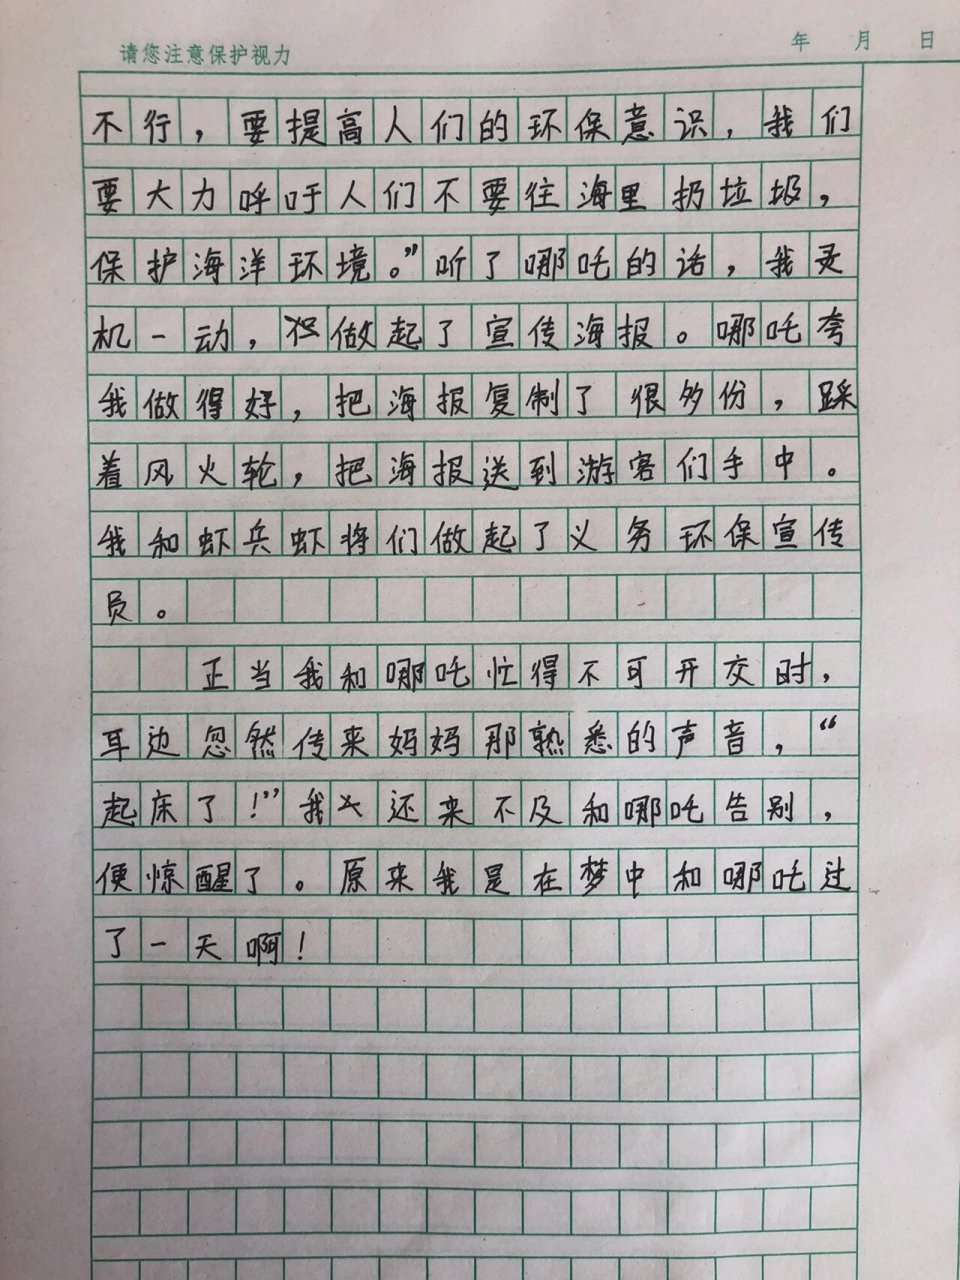 请您注意保护视力
年 月 日
不行，要提高人们的环保意识，我们
要大力呼吁人们不要往海里扔垃圾，
保护海洋环境。”听了哪吒的话，我灵
机一动，做起了宣传海报。哪吒夸
我做得好，把海报复制了很多份，踩
着风火轮，把海报送到游客们手中。
我和虾兵虾将们做起了义务环保宣传
员。
正当我和哪吒忙得不可开交时，
耳边忽然传来妈妈那熟悉的声音，“
起床了！”我还来不及和哪吒告别，
便惊醒了。原来我是在梦中和哪吒过
了一天啊！